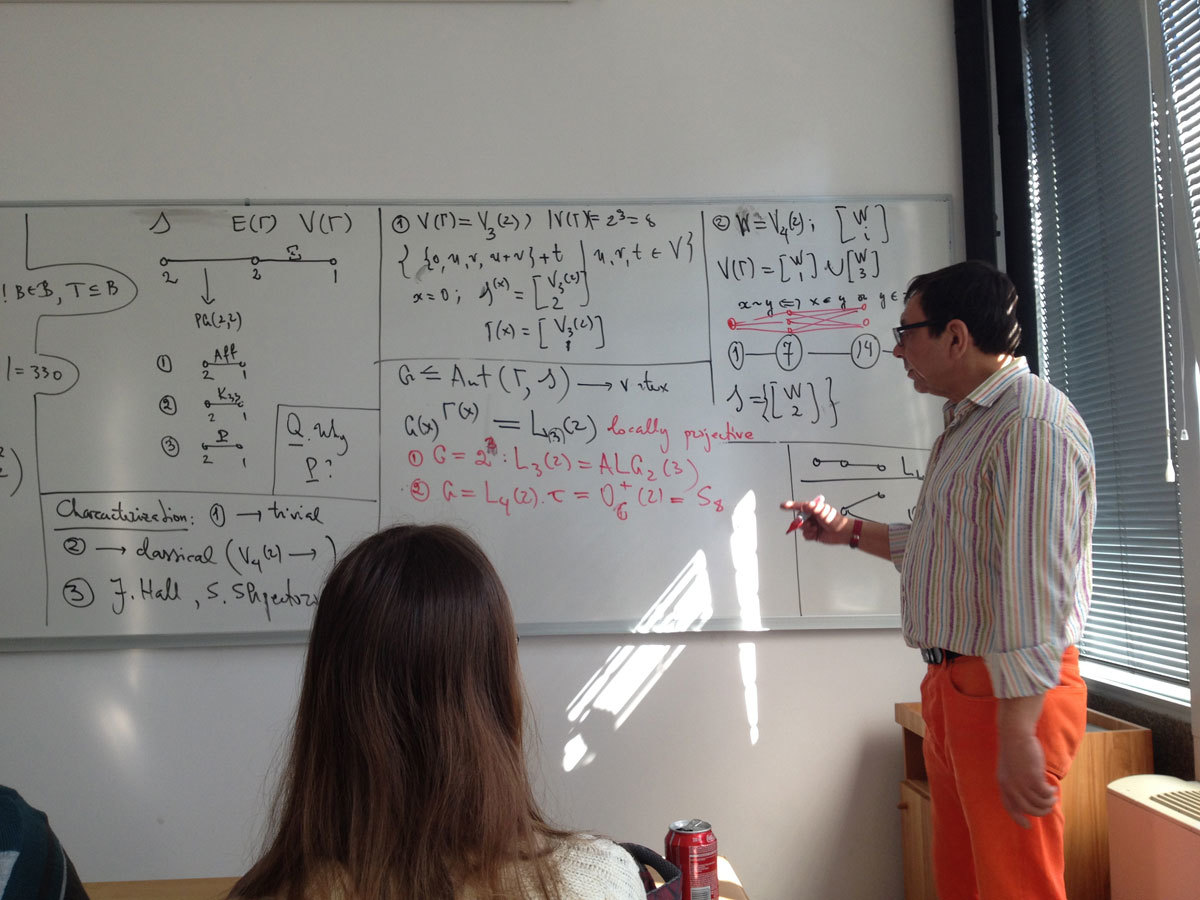 ! B∈B, T⊆B
l = 330
S E(Γ) V(Γ)
2 2 1
PG(2,2)
① Aff
2 1
② K₃,₃
2 1
③ P
2 1
Q. Why
P?
Characterization: ① → trivial
② → classical (V₄(2) → )
③ J. Hall, S. Shpectorov
① V(Γ) = V₃(2), |V(Γ)| = 2³ = 8
{ {0, u, v, u+v} + t | u, v, t ∈ V}
x = 0; S^(x) = [V₃(2) 2]
Γ(x) = [V₃(2) 1]
G ≤ Aut(Γ, S) →
G(x)^Γ(x) = L₃(2) locally projective
① G = 2³ : L₃(2) = ALG₂(3)
② G = L₄(2).τ = O₆⁺(2) = S₈
② W = V₄(2); [W i]
V(Γ) = [W 1] ∪ [W 3]
x ~ y ⟺ x ∈ y or y ∈
① — ⑦ — ⑭ —
S = {[W 2]}